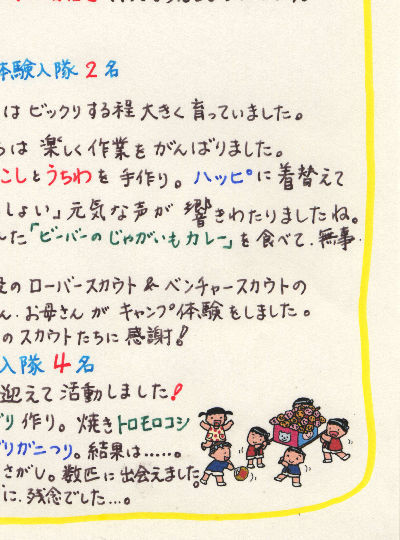 体験入隊 2名
はビックリする程 大きく 育っていました。
らは 楽しく 作業を がんばりました。
こしとうちわを 手作り。ハッピに 着替えて
しょい」元気な声が 響きわたりましたね。
んた「ビーバーのじゃがいもカレー」を食べて、無事
のローバースカウト & ベンチャースカウトの
ん、お母さん が キャンプ体験をしました。
のスカウトたちに 感謝!
入隊 4名
迎えて 活動しました!
り 作り。焼きトロモロコシ
りがニつり。結果は……。
さがし。数匹に出会えました
に、残念でした…。